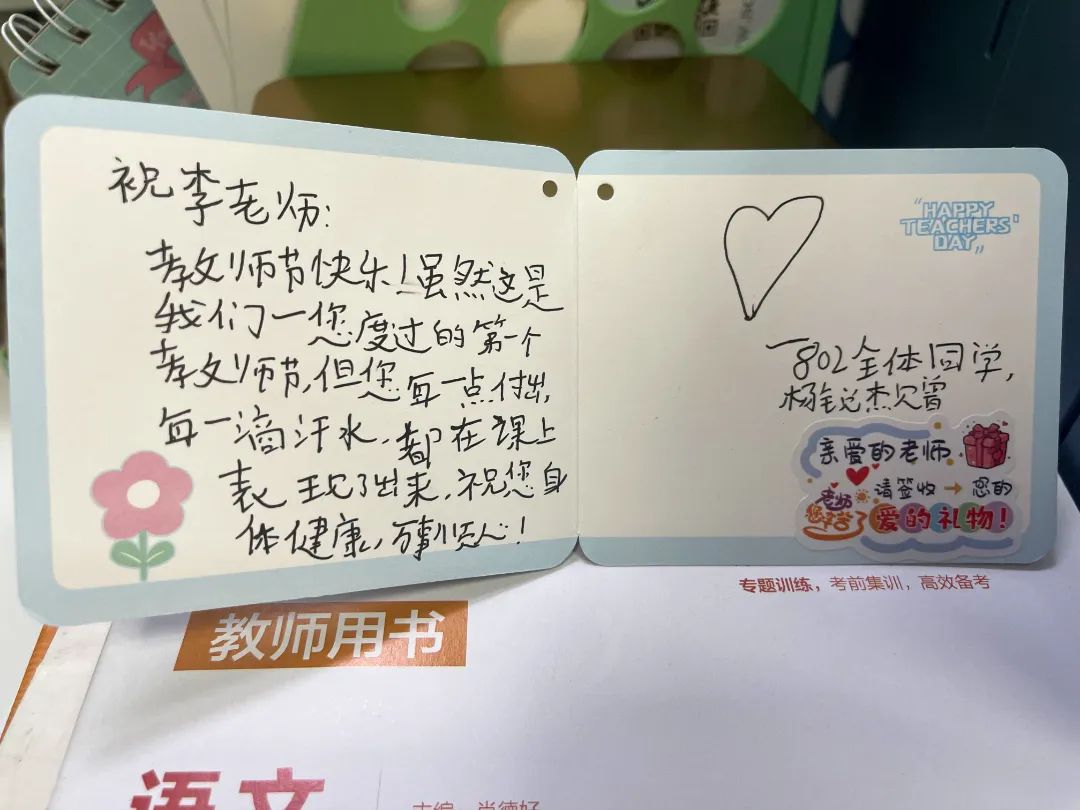 祝李老师:
教师节快乐!虽然这是
我们一您度过的第一个
教师节,但您每一点付出,
每一滴汗水,都在课上
表现了出来,祝您身
体健康,万事顺心!
"HAPPY
TEACHERS'
DAY"
一802全体同学,
杨锐杰
亲爱的老师
请签收→您的
老师
您辛苦了
爱的礼物!
专题训练,考前集训,高效备考
教师用书
语文
主编 肖德好